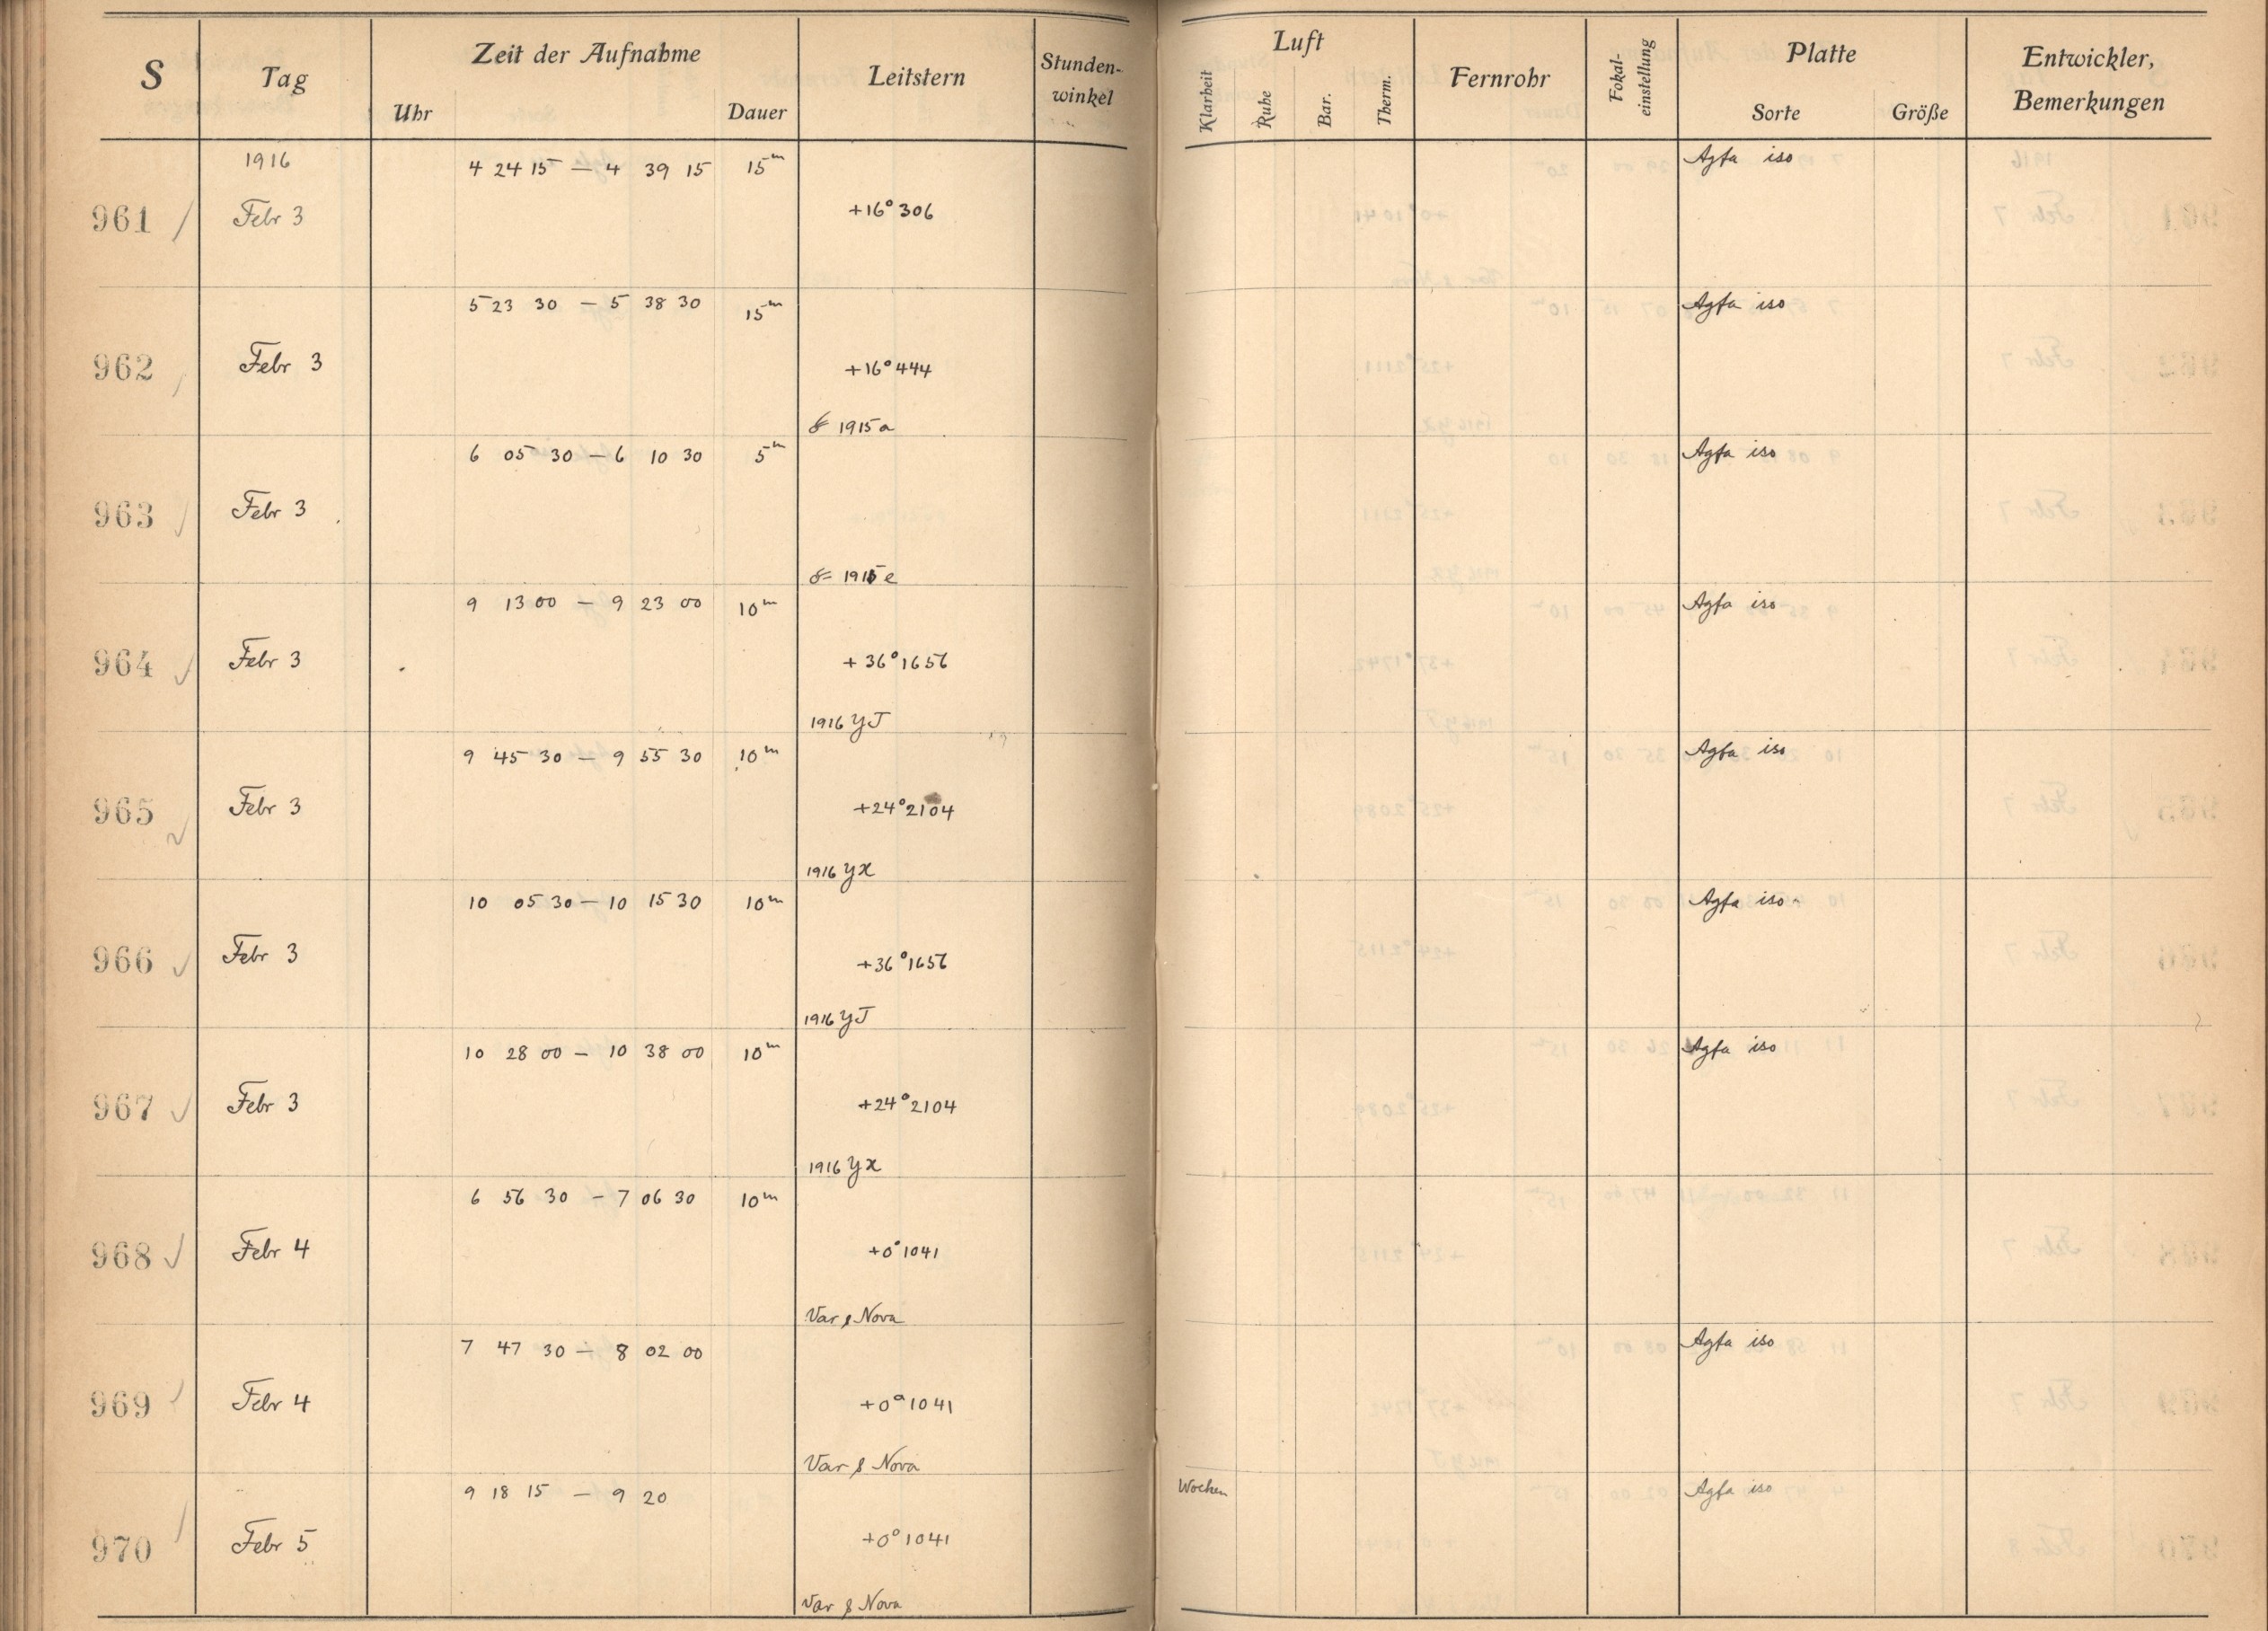 S Tag Zeit der Aufnahme Leitstern Stunden-winkel Luft Fernrohr Fokal-einstellung Platte Entwickler, Bemerkungen
Uhr Dauer Klarheit Ruhe Bar. Therm. Sorte Größe
1916 4 24 15 — 4 39 15 15m Agfa iso
961 Febr 3 +16° 306
5 23 30 — 5 38 30 15m Agfa iso
962 Febr 3 +16° 444
1915 a
6 05 30 — 6 10 30 5m Agfa iso
963 Febr 3
1915 e
9 13 00 — 9 23 00 10m Agfa iso
964 Febr 3 +36° 1656
1916 YJ
9 45 30 — 9 55 30 10m Agfa iso
965 Febr 3 +24° 2104
1916 YX
10 05 30 — 10 15 30 10m Agfa iso
966 Febr 3 +36° 1656
1916 YJ
10 28 00 — 10 38 00 10m Agfa iso
967 Febr 3 +24° 2104
1916 YX
6 56 30 — 7 06 30 10m
968 Febr 4 +0° 1041
Var & Nova
7 47 30 — 8 02 00 Agfa iso
969 Febr 4 +0° 1041
Var & Nova
9 18 15 — 9 20 Wochen Agfa iso
970 Febr 5 +0° 1041
Var & Nova